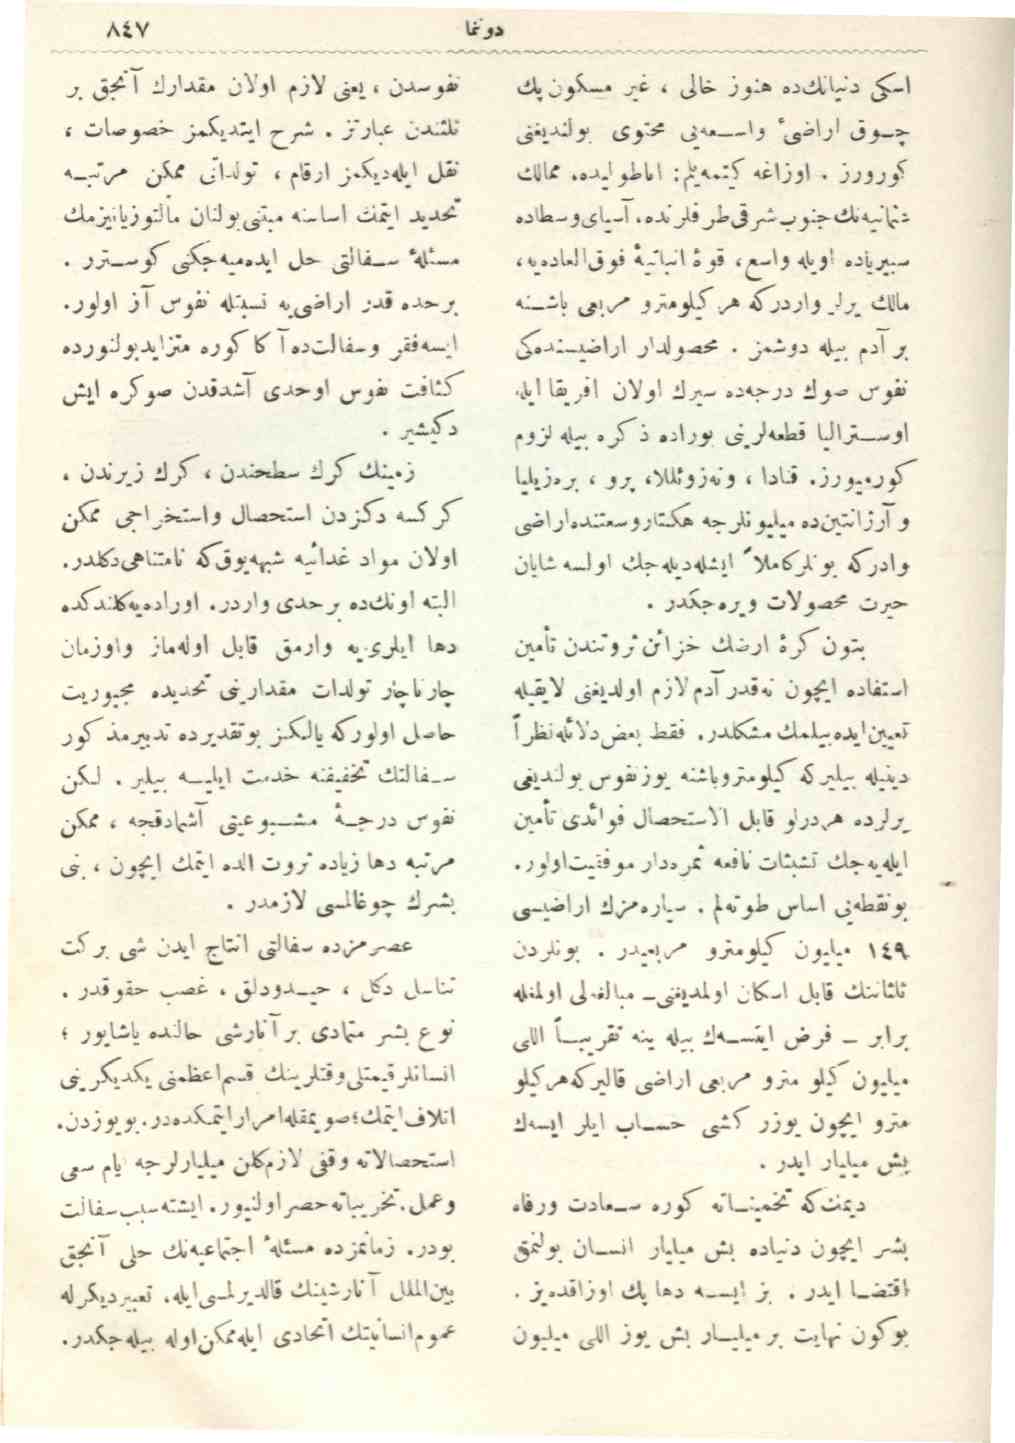 دوننما ٨٤٧
اسكی دنيانك‌ده هنوز خالی ، غير مسكون پك
چــوق اراضیٔ واســعه‌یی محتوی بولنديغنی
كورورز . اوزاغه كيتمه‌يه‌لم : اناطوليده، ممالك
عثمانيه‌نك جنوب شرقی طرفلرنده، آسيای وسطاده
سبيرياده اويله واسع، قوهٔ انباتيهٔ فوق‌العاده‌يه،
مالك يرلر واردركه هر كيلومترو مربعی باشــنه
بر آدم بيله دوشمز . محصولدار اراضيســنده‌كی
نفوس صوك درجه‌ده سيرك اولان افريقا ايله،
اوســتراليا قطعه‌لرينی بوراده ذكره بيله لزوم
كورميورز. قنادا ، ونه‌زوئللا، پرو ، بره‌زيليا
و آرژانتين‌ده ميليونلرجه هكتار وسعتنده اراضی
واردركه بونلر كاملاً ايشله‌ديله‌جك اولسه شايان
حيرت محصولات ويره‌جكدر .
بتون كرهٔ ارضك خزائن ثروتندن تأمين
استفاده ايچون نه‌قدر آدم لازم اولديغنی لايقيله
تعيين ايده‌بيلمك مشكلدر. فقط بعض دلائله نظراً
دينيله بيليركه كيلومترو باشنه يوز نفوس بولنديغی
يرلرده هردرلو قابل الاستحصال فوائدی تأمين
ايله‌يه‌جك تشبثات نافعه ثمره‌دار موفقيت اولور.
بونقطه‌یی اساس طوته‌لم . سياره‌مزك اراضيــسی
١٤٩ ميليون كيلومترو مربعيدر . بونلردن
ثلثاننك قابل اسكان اولمديغنی ـ مبالغه‌لی اولمغله
برابر ـ فرض ايتســه‌ك بيله ينه تقريبــاً اللی
ميليون كيلو مترو مربعی اراضی قاليركه هركيلو
مترو ايچون يوزر كشی حســاب ايلر ايسه‌ك
بش ميليار ايدر .
ديمك‌كه تخمينــاته كوره ســعادت ورفاه
بشر ايچون دنياده بش ميليار انســان بولنمق
اقتضــا ايدر . بز ايســه دها پك اوزاقده‌يز .
بوكون نهايت بر ميليــار بش يوز اللی ميليون
نفوسدن ، يعنی لازم اولان مقدارك آنجق بر
ثلثندن عبارتز . شرح ايتديكمز خصوصات ،
نقل ايله‌ديكمز ارقام ، تولداتی ممكن مرتبــه
تحديد ايتمك اساسنه مبتنی بولنان مالتوزيانيزمك
مسئلهٔ ســفالتی حل ايده‌ميه‌جكنی كوســترر .
برحده قدر اراضی‌يه نسبتله نفوس آز اولور.
ايسه فقر وسفالت‌ده آ كا كوره متزايد بولنورده
كثافت نفوس او حدی آشدقدن صوكره ايش
دكيشير .
زمينك كرك سطحندن ، كرك زيرندن ،
كركسه دكزدن استحصال واستخراجی ممكن
اولان مواد غدائيه شبهه‌يوق‌كه نامتناهی دكلدر.
البته اونك‌ده بر حدی واردر. اوراده‌يه كلندكده
دها ايلری‌يه وارمق قابل اوله‌ماز واوزمان
چارناچار تولدات مقدارينی تحديده مجبوريت
حاصل اولوركه يالكــز بوتقديرده تدبير مذكور
ســفالتك تخفيفنه خدمت ايليــه بيلير . لكن
نفوس درجــهٔ مشــبوعيتی آشمادقجه ، ممكن
مرتبه دها زياده ثروت الده ايتمك ايچون ، بنی
بشرك چوغالمسی لازمدر .
عصرمزده سفالتی انتاج ايدن شی بركت
تناسل دكل ، حيــدودلق ، غصب حقوقدر .
نوع بشر متمادی بر آنارشی حالنده ياشايور ؛
انسانلر قيمتلی وقتلرينك قسم اعظمنی يكديكرينی
اتلاف ايتمك؛ صويمقله امرار ايتمكده‌در. بو يوزدن.
استحصالاته وقفی لازم‌كلن ميليارلرجه ايام سعی
وعمل. تخريباته حصر اولنيور. ايشته سبب سفالت
بودر. زمانمزده مسئلهٔ اجتماعيه‌نك حلی آنجق
بين‌الملل آنارشينك قالديرلمسی ايله، تعبير ديكرله
عموم انسانيتك اتحادی ايله ممكن اوله بيله‌جكدر.